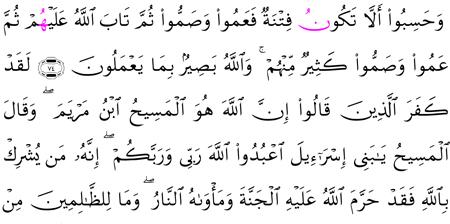 وَحَسِبُوٓا۟ أَلَّا تَكُونُ فِتْنَةٌ فَعَمُوا۟ وَصَمُّوا۟ ثُمَّ تَابَ ٱللَّهُ عَلَيْهُمْ ثُمَّ
عَمُوا۟ وَصَمُّوا۟ كَثِيرٌ مِّنْهُمْ ۚ وَٱللَّهُ بَصِيرٌۢ بِمَا يَعْمَلُونَ ﴿٧٤﴾ لَقَدْ
كَفَرَ ٱلَّذِينَ قَالُوٓا۟ إِنَّ ٱللَّهَ هُوَ ٱلْمَسِيحُ ٱبْنُ مَرْيَمَ ۖ وَقَالَ
ٱلْمَسِيحُ يَـٰبَنِىٓ إِسْرَٰٓءِيلَ ٱعْبُدُوا۟ ٱللَّهَ رَبِّى وَرَبَّكُمْ ۖ إِنَّهُۥ مَن يُشْرِكْ
بِٱللَّهِ فَقَدْ حَرَّمَ ٱللَّهُ عَلَيْهِ ٱلْجَنَّةَ وَمَأْوَىٰهُ ٱلنَّارُ ۖ وَمَا لِلظَّـٰلِمِينَ مِنْ